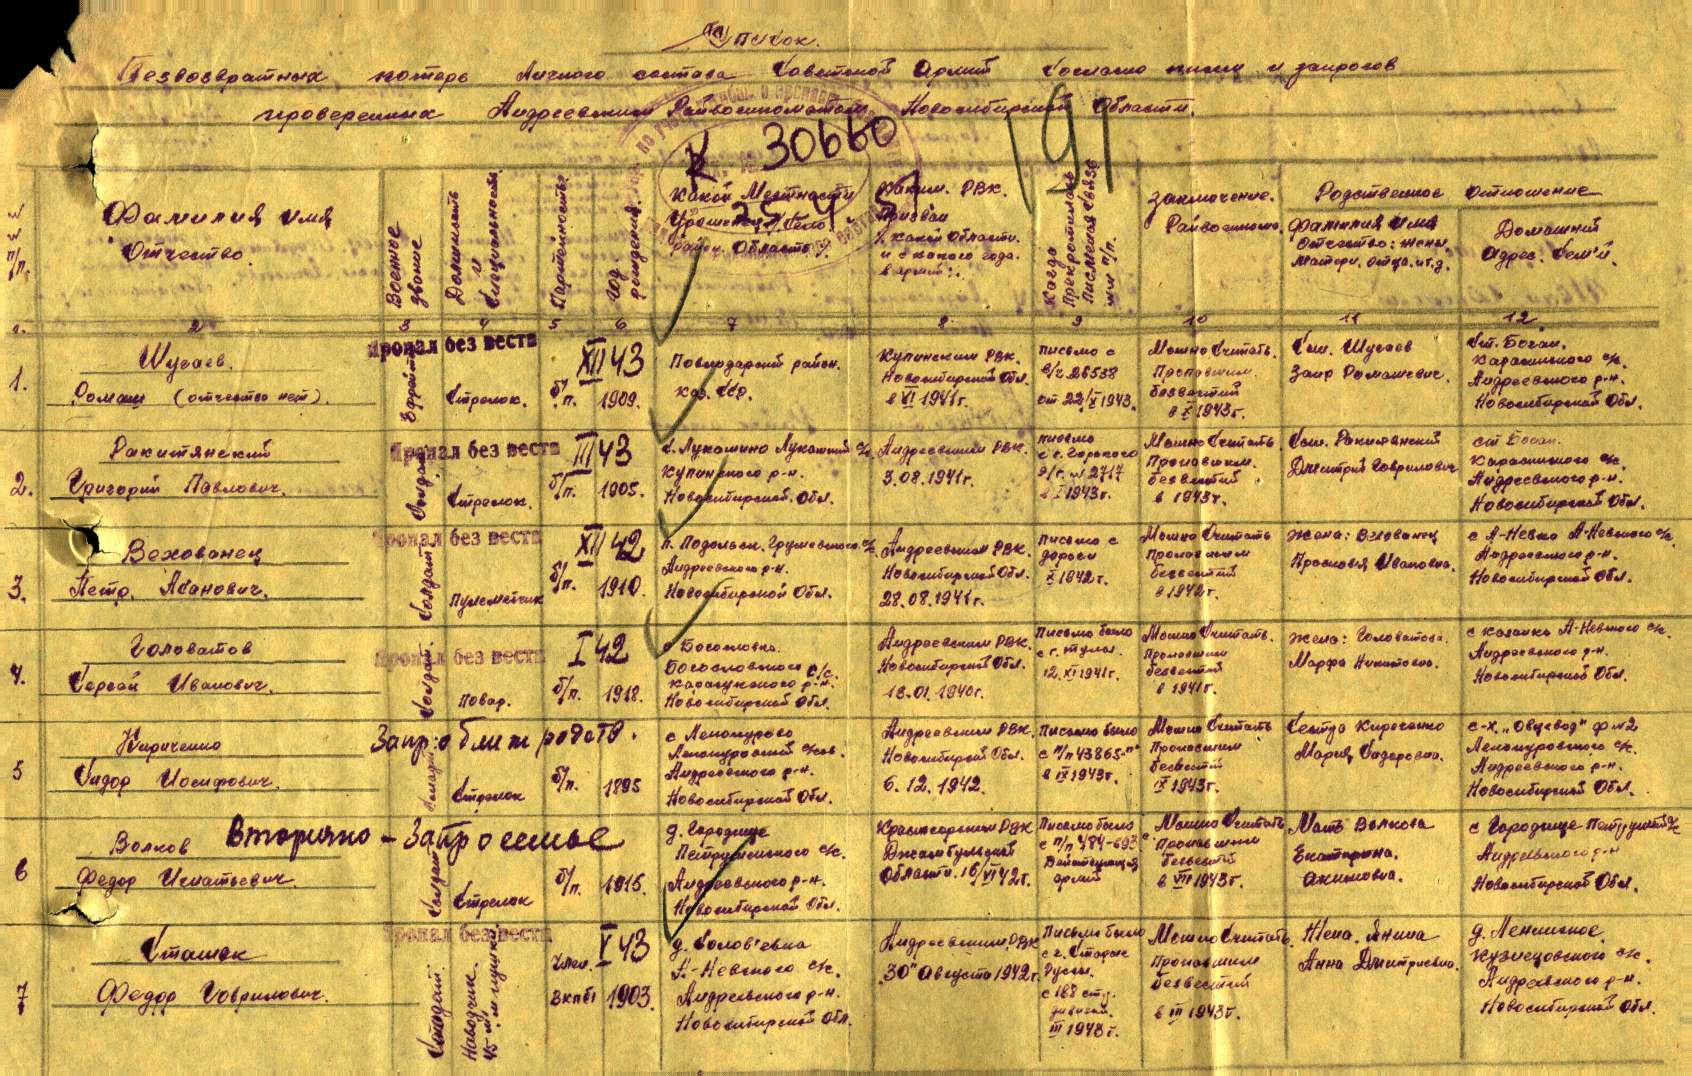 Список.
Безвозвратных потерь личного состава Советской Армии согласно писем и запросов
проверенных Андреевским Райвоенкоматом Новосибирской Области.
30660
191
№№ п/п.
Фамилия имя
Отчество.
Военное звание
Должность и специальность
Партийность
год. рождения.
Какой Местности
Уроженец, Село
район. Область.
Каким. РВК.
Призван
и с какого года.
в армии:.
Когда Прекратилась Писменая связь
№№ п/п.
Заключение.
Райвоенкома.
Родственное отношение
Фамилия имя
Отчество: жены
матери. отца. и т.д.
Домашний
Адрес. Семьи.
1. 2 3 4 5 6 7 8 9 10 11 12
1.
Шугаев.
Ромаш (отчества нет).
Пропал без вести
Ефрейтор
Стрелок.
б/п.
XII 43
1909.
Повлодарский район.
Каз. ССР.
Купинским РВК.
Новосибирской Обл.
в VI 1941г.
письмо с
п/с 26538
от 22/X 1943.
Можно Считать.
Пропавшим.
безвестий
в X 1943г.
Сын. Шугаев
Заир Ромашевич.
Ст. Боган.
Карасинского с/с.
Андреевского р-н.
Новосибирской Обл.
2.
Ракитянский
Григорий Павлович.
Пропал без вести
Солдат
Стрелок.
б/п.
III 43
1905.
с. Лукошино Лукошинский с/с
Купинского р-н.
Новосибирской. Обл.
Андреевским РВК.
3.08.1941г.
письмо
с г. Горького
п/г. № 2717
в I 1943г.
Можно Считать
Пропавшим.
безвестий
в 1943г.
Сын. Ракитянский
Дмитрий Гаврилович
ст Боган.
Карасинского с/с.
Андреевского р-н.
Новосибирской Обл.
3.
Вехованец
Петр. Иванович.
Пропал без вести
Солдат
Пулеметчик
б/п.
XII 42
1910.
п. Подольск. Грушевского с/с
Андреевского р-н.
Новосибирской Обл.
Андреевским РВК.
Новосибирской Обл.
28.08.1941г.
письмо с
дороги
X 1942г.
Можно Считать
Пропавшим
безвестий
в 1942г.
Жена: Вехованец
Просковья Ивановна.
с А-Невка А-Невского с/с.
Андреевского р-н.
Новосибирской Обл.
4.
Головатов
Сергей Иванович.
Пропал без вести
Солдат.
Повар.
б/п.
I 42
1918.
с Богословка.
Богословского с/с.
Карасукского р-н.
Новосибирской Обл.
Андреевским РВК.
Новосибирской Обл.
18.01.1940г.
Письмо было
с г. Тулы.
12.XI 1941г.
Можно Считать.
Пропавшим
безвестий
в 1941г.
Жена: Головатова.
Марфа Никитовна.
с Казанка А-Невского с/с.
Андреевского р-н.
Новосибирской Обл.
5
Кириченко
Сидор Иосифович.
Солдат
Стрелок
б/п.
1895
с Ленокурово
Ленокуровский с/сов.
Андреевского р-н.
Новосибирской Обл.
Андреевским РВК.
Новосибирской Обл.
6.12.1942.
Письмо было
с п/п 43865-п
в IX 1943г.
Можно Считать
Пропавшим
безвестий
IX 1943г.
Сестра Кириченко
Мария Сидоровна.
с-х. „Овцевод" ф №2
Ленокуровского с/с.
Андреевского р-н.
Новосибирской Обл.
6
Волков
Федор Игнатьевич.
Вторично - Запросные
Солдат
Стрелок
б/п.
1915.
д. Городище
Петрушинского с/с.
Андреевского р-н.
Новосибирской Обл.
Красногорским РВК
Джамбульской
Области. 16/VI 42г.
Письмо было
с п/п 484-693
Действующая
армий
Можно Считать
Пропавшим
безвестий
в VII 1943г.
Мать Волкова
Екатерина.
Акимовна.
с Городище
Андреевского р-н
Новосибирской Обл.
7
Сташек
Федор Гаврилович.
Пропал без вести
Солдат.
Наводчик.
45 м/м пушки
Член.
ВКПб)
V 43
1903.
д. Соловьевка
А-Невского с/с.
Андреевского р-н.
Новосибирской Обл.
Андреевским. РВК
30" Августа 1942г.
Письмо было
с г. Старая
Русса.
с 188 стр.
дивизий.
III 1943г.
Можно Считать.
Пропавшим
безвестий
в III 1943г.
Жена.
Анна Дмитриевна.
д. Ленинское.
Кузнецовского с/с.
Андреевского р-н.
Новосибирской Обл.